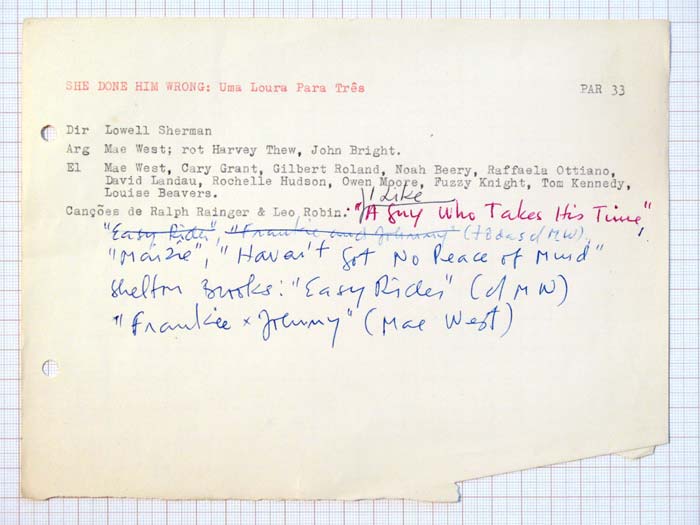 SHE DONE HIM WRONG: Uma Loura Para Três PAR 33
Dir Lowell Sherman
Arg Mae West; rot Harvey Thew, John Bright.
El Mae West, Cary Grant, Gilbert Roland, Noah Beery, Raffaela Ottiano,
David Landau, Rochelle Hudson, Owen Moore, Fuzzy Knight, Tom Kennedy,
Louise Beavers.
I Like
Canções de Ralph Rainger & Leo Robin. "A Guy Who Takes His Time",
"Easy Rider", "Frankie and Johnny" (todas c/ MW).
"Maizie", "Haven't Got No Peace of Mind"
Shelton Brooks: "Easy Rider" (c/ MW)
"Frankie x Johnny" (Mae West)